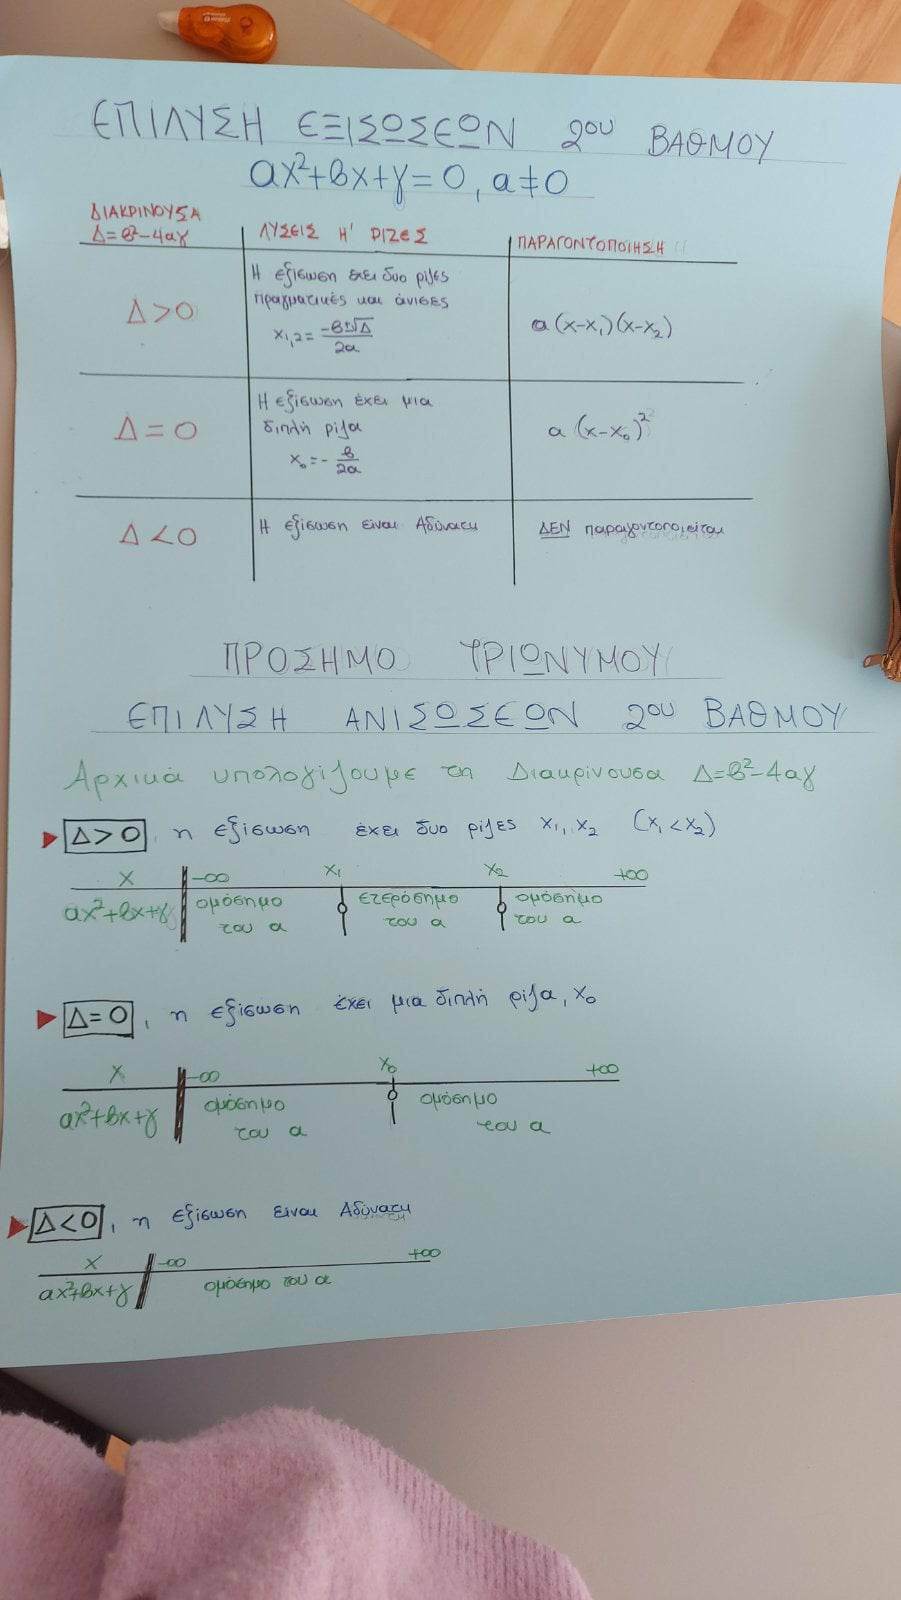 ΕΠΙΛΥΣΗ ΕΞΙΣΩΣΕΩΝ 2ου ΒΑΘΜΟΥ
αx²+βx+γ=0, α≠0
ΔΙΑΚΡΙΝΟΥΣΑ
Δ=β²-4αγ
ΛΥΣΕΙΣ Η' ΡΙΖΕΣ
ΠΑΡΑΓΟΝΤΟΠΟΙΗΣΗ
Δ>0
Η εξίσωση έχει δυο ρίζες
πραγματικές και άνισες
x₁,₂=(-β±√Δ)/2α
α(x-x₁)(x-x₂)
Δ=0
Η εξίσωση έχει μια
διπλή ρίζα
x₀=-β/2α
α(x-x₀)²
Δ<0
Η εξίσωση είναι Αδύνατη
ΔΕΝ παραγοντοποιείται
ΠΡΟΣΗΜΟ ΤΡΙΩΝΥΜΟΥ
ΕΠΙΛΥΣΗ ΑΝΙΣΩΣΕΩΝ 2ου ΒΑΘΜΟΥ
Αρχικά υπολογίζουμε τη Διακρίνουσα Δ=β²-4αγ
Δ>0, η εξίσωση έχει δυο ρίζες x₁, x₂ (x₁<x₂)
x -∞ x₁ x₂ +∞
αx²+βx+γ ομόσημο ετερόσημο ομόσημο
του α του α του α
Δ=0, η εξίσωση έχει μια διπλή ρίζα, x₀
x -∞ x₀ +∞
αx²+βx+γ ομόσημο ομόσημο
του α του α
Δ<0, η εξίσωση είναι Αδύνατη
x -∞ +∞
αx²+βx+γ ομόσημο του α